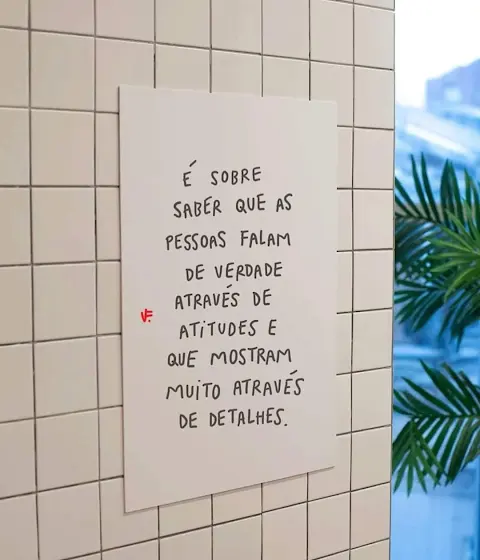 É SOBRE
SABER QUE AS
PESSOAS FALAM
DE VERDADE
ATRAVÉS DE
ATITUDES E
QUE MOSTRAM
MUITO ATRAVÉS
DE DETALHES.
VF.